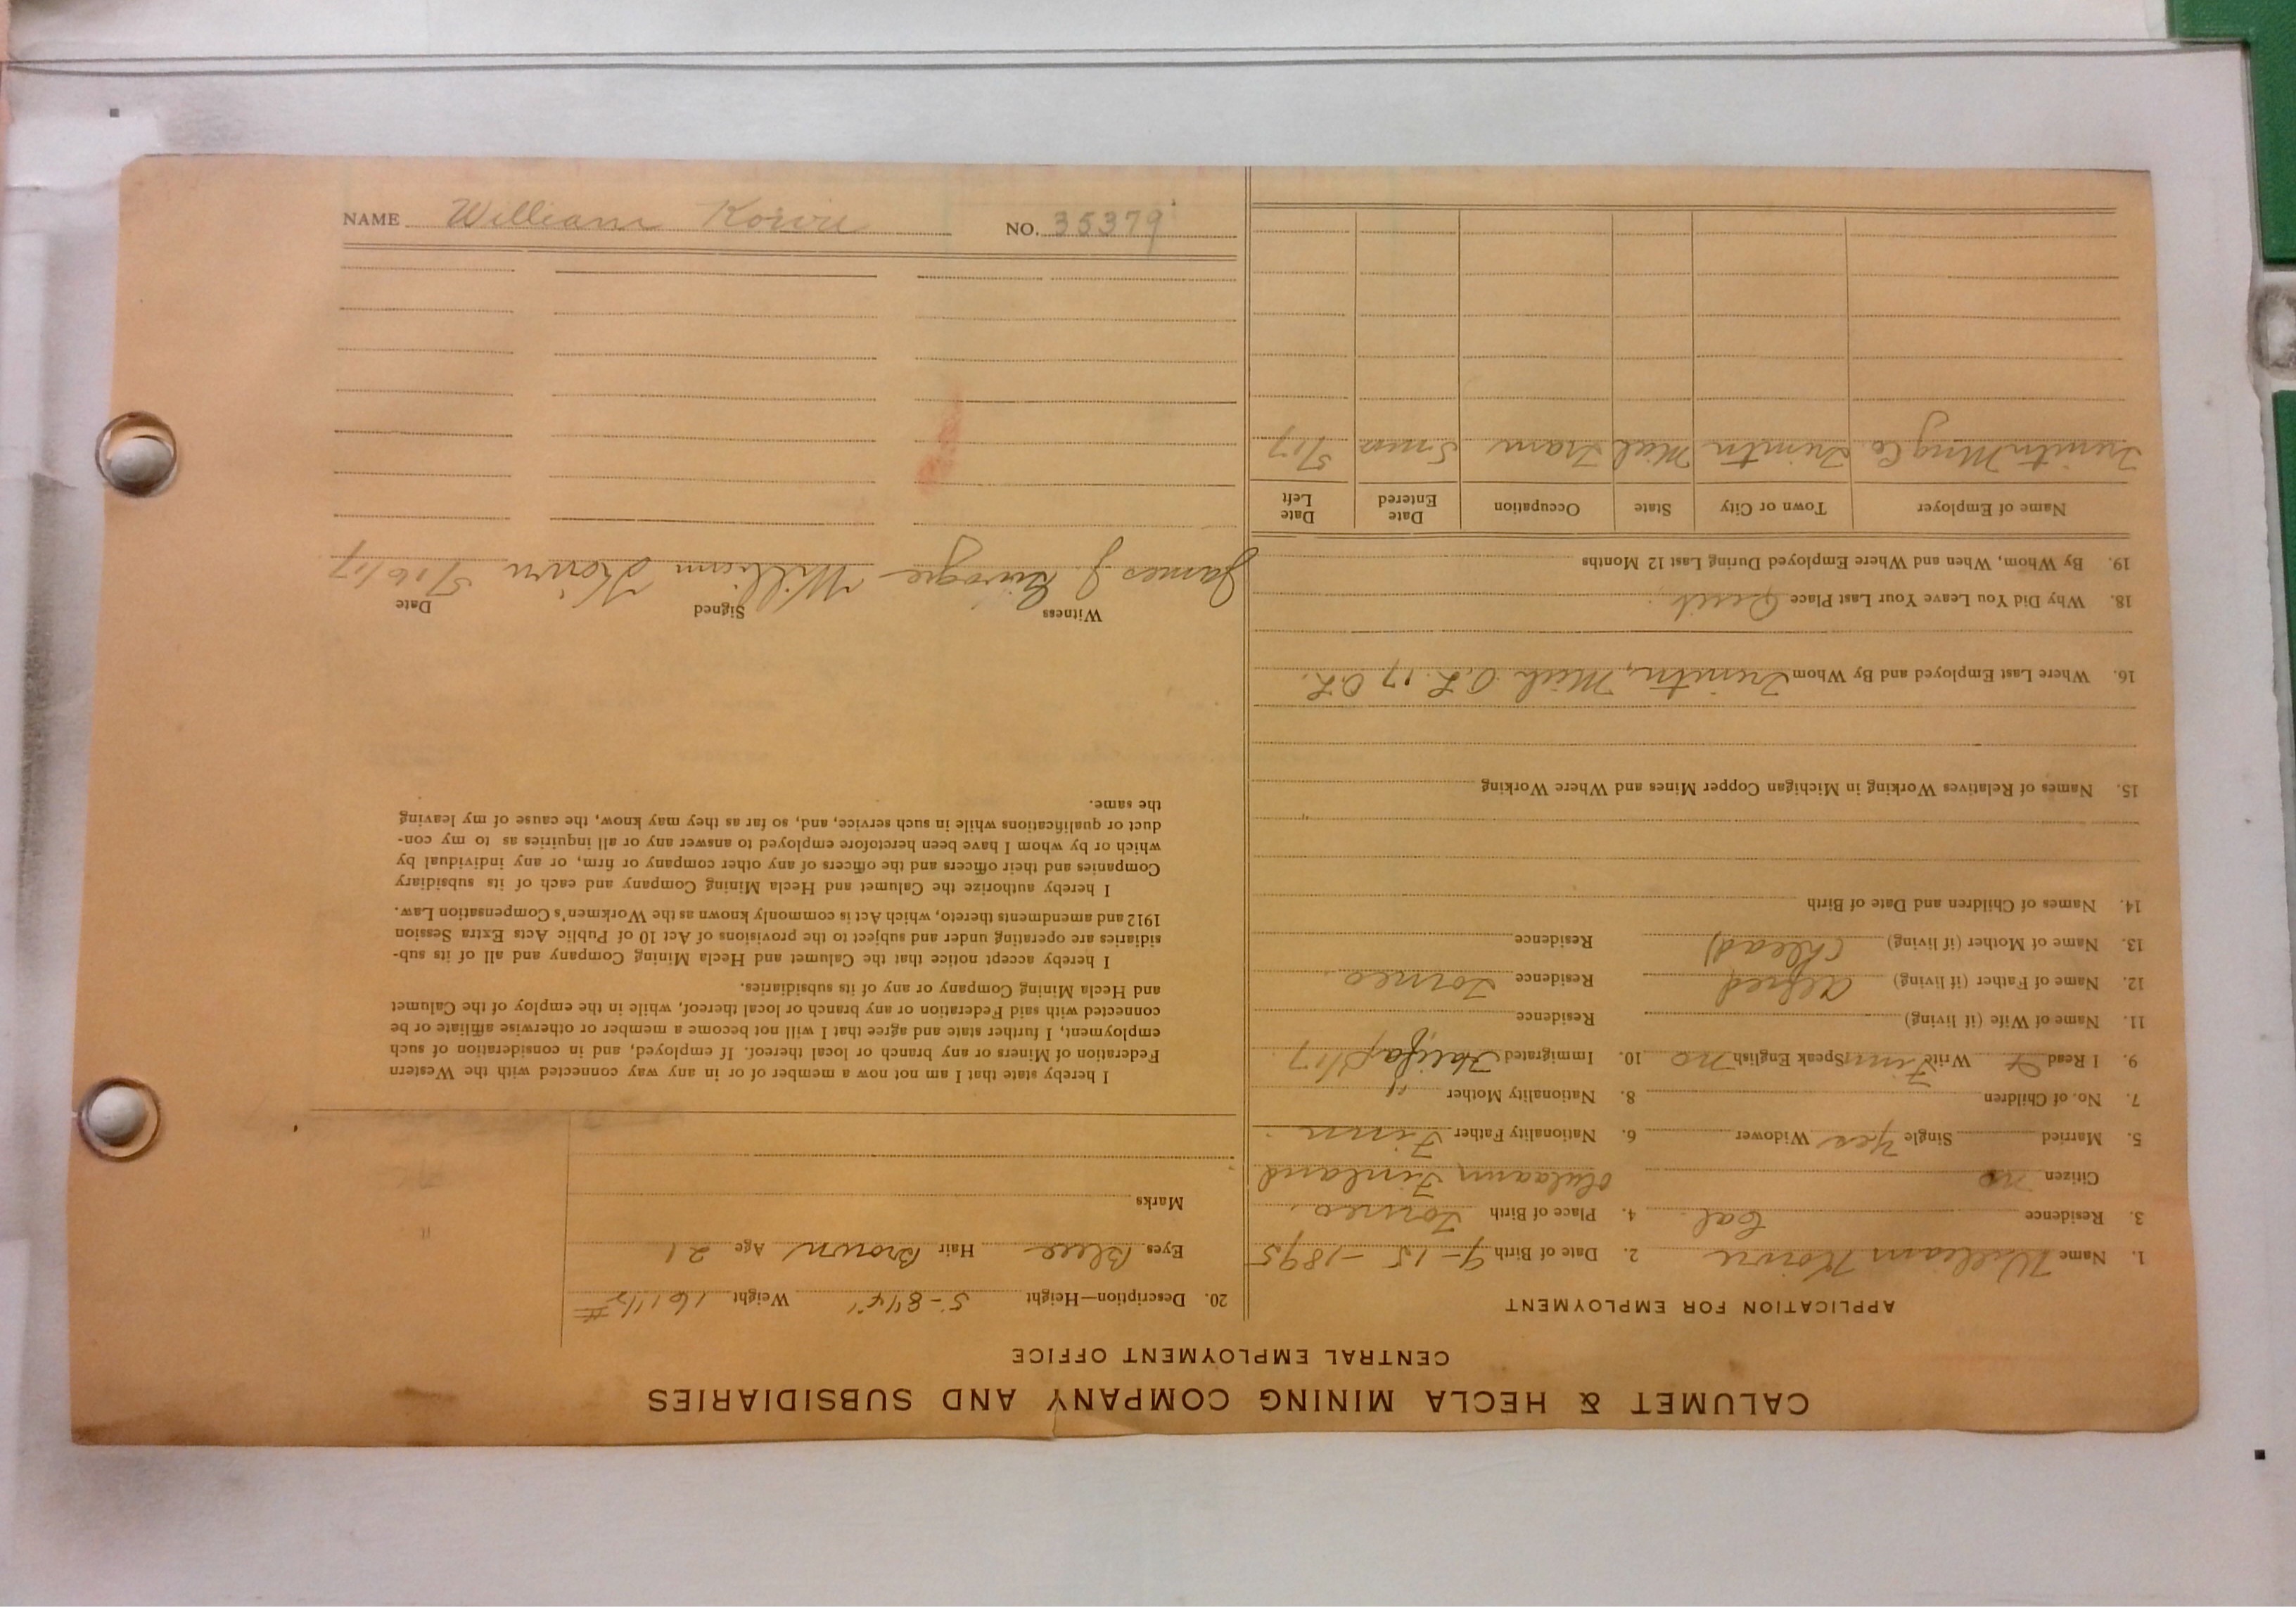 CALUMET & HECLA MINING COMPANY AND SUBSIDIARIES
CENTRAL EMPLOYMENT OFFICE
APPLICATION FOR EMPLOYMENT
1. Name William Koivu 2. Date of Birth 9-15-1895
3. Residence Cal. 4. Place of Birth Torneo,
Citizen no Finland
5. Married Single Yes Widower 6. Nationality Father Finn
7. No. of Children 8. Nationality Mother "
9. I Read & Write Finn Speak English no 10. Immigrated Halifax
11. Name of Wife (if living) Residence
12. Name of Father (if living) Alfred Residence Torneo
13. Name of Mother (if living) (dead) Residence
14. Names of Children and Date of Birth
15. Names of Relatives Working in Michigan Copper Mines and Where Working
16. Where Last Employed and By Whom Trimtn, Mich
18. Why Did You Leave Your Last Place Quit
19. By Whom, When and Where Employed During Last 12 Months
Name of Employer Town or City State Occupation Date Entered Date Left
Trimtn Mng Co Trimtn Mich Tram 5/17
20. Description—Height 5-8 1/4" Weight 161 1/2 #
Eyes Blue Hair Brown Age 21
Marks
I hereby state that I am not now a member of or in any way connected with the Western
Federation of Miners or any branch or local thereof. If employed, and in consideration of such
employment, I further state and agree that I will not become a member or otherwise affiliate or be
connected with said Federation or any branch or local thereof, while in the employ of the Calumet
and Hecla Mining Company or any of its subsidiaries.
I hereby accept notice that the Calumet and Hecla Mining Company and all of its sub-
sidiaries are operating under and subject to the provisions of Act 10 of Public Acts Extra Session
1912 and amendments thereto, which Act is commonly known as the Workmen's Compensation Law.
I hereby authorize the Calumet and Hecla Mining Company and each of its subsidiary
Companies and their officers and the officers of any other company or firm, or any individual by
which or by whom I have been heretofore employed to answer any or all inquiries as to my con-
duct or qualifications while in such service, and, so far as they may know, the cause of my leaving
the same.
Witness Signed Date
James J. William Koivu 5/16/17
NAME William Koivu NO. 35379